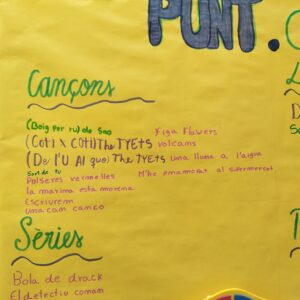 PUNT.
Cançons
(Boig per tu) de Sao
Xiga Flowers
(Coti x coti) The TYETS volcans
(De l'U Al que) The TYETS una lluna a l'aigua
Surt de tu
Polseres vermelles M'he enamorat al supermercat
la marina esta morena
Escriurem
una cam canco
Sèries
Bola de drack
El detectiu conan